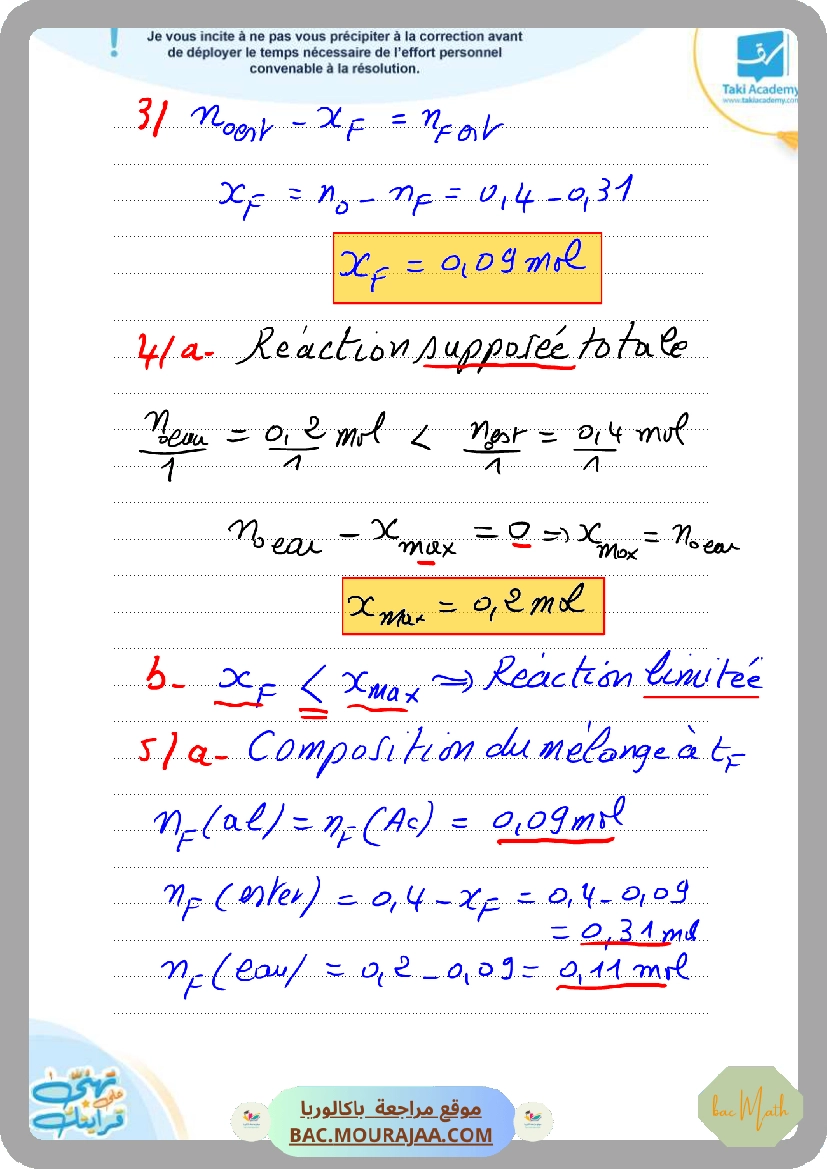 Je vous incite à ne pas vous précipiter à la correction avant
de déployer le temps nécessaire de l'effort personnel
convenable à la résolution.
Taki Academy
www.takiacademy.com
3/ n₀est - x_F = n_F est
x_F = n₀ - n_F = 0,4 - 0,31
x_F = 0,09 mol
4/a- Réaction supposée totale
n₀eau/1 = 0,2/1 mol < n₀est/1 = 0,4/1 mol
n₀eau - x_max = 0 => x_max = n₀eau
x_max = 0,2 mol
b- x_F < x_max => Réaction limitée
5/a- Composition du mélange à t_F
n_F(al) = n_F(Ac) = 0,09 mol
n_F(ester) = 0,4 - x_F = 0,4 - 0,09
= 0,31 mol
n_F(eau) = 0,2 - 0,09 = 0,11 mol
تهنّى
على
قرايتك
موقع مراجعة باكالوريا
BAC.MOURAJAA.COM
bac Math